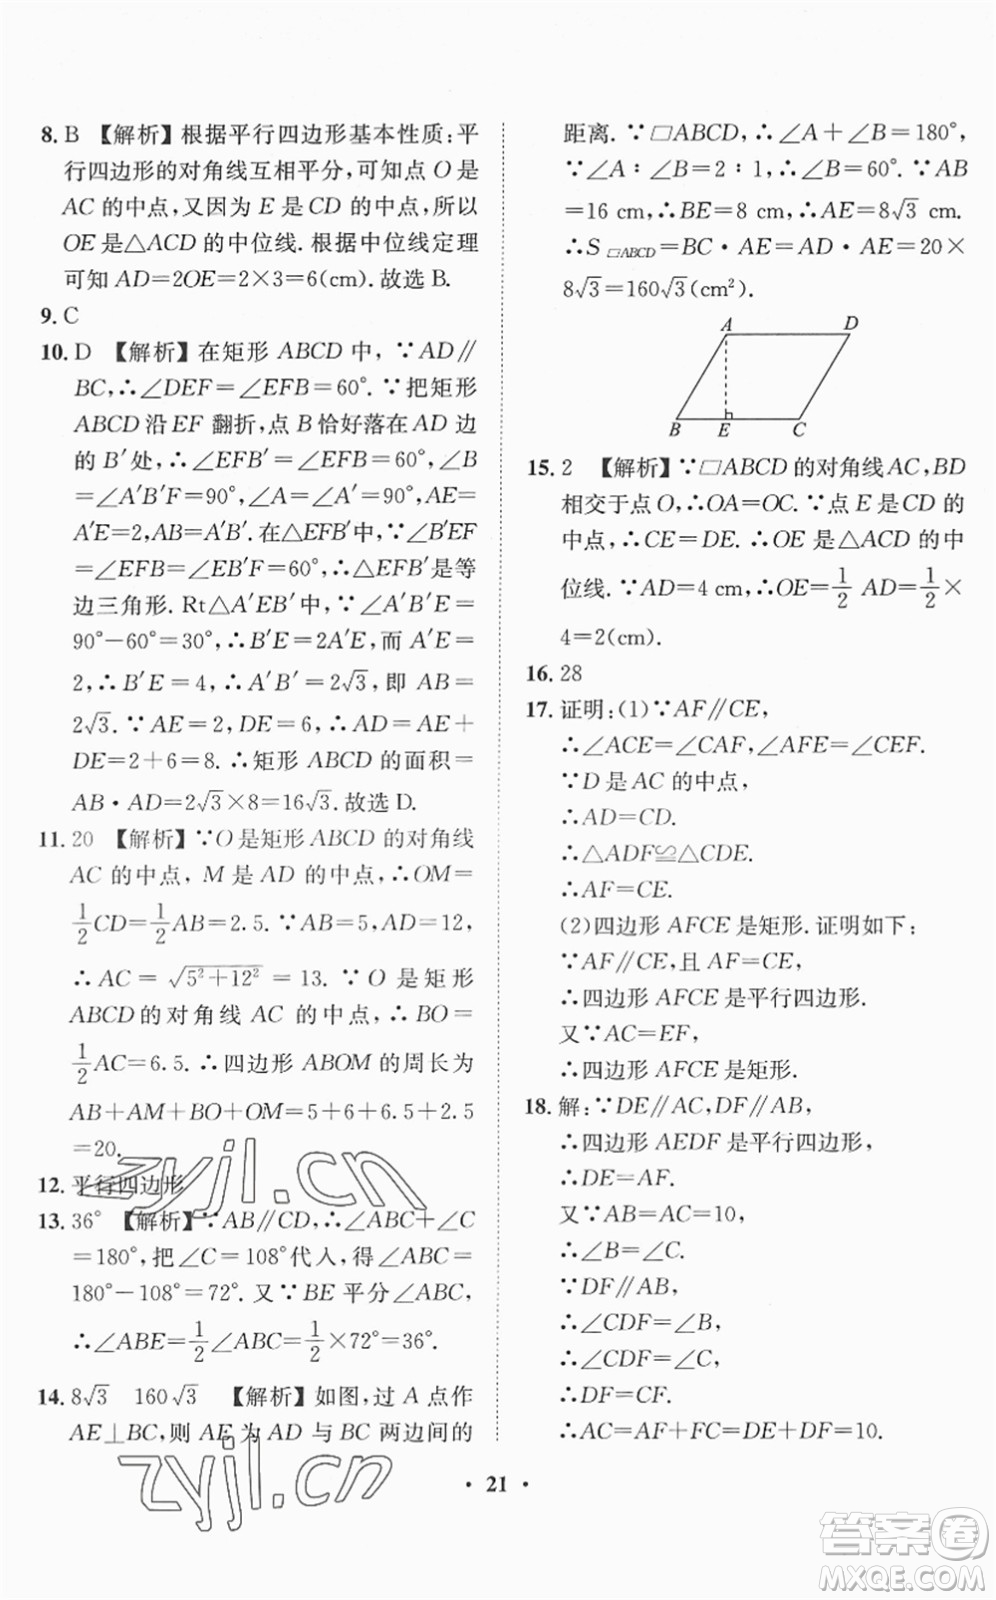 8. B 【解析】根据平行四边形基本性质:平
行四边形的对角线互相平分,可知点 O 是
AC 的中点,又因为 E 是 CD 的中点,所以
OE 是△ACD 的中位线. 根据中位线定理
可知 AD=2OE=2×3=6(cm). 故选 B.
9. C
10. D 【解析】在矩形 ABCD 中,∵AD∥
BC,∴∠DEF=∠EFB=60°. ∵把矩形
ABCD 沿 EF 翻折,点 B 恰好落在 AD 边
的 B′处,∴∠EFB′=∠EFB=60°,∠B
=∠A′B′F=90°,∠A=∠A′=90°,AE=
A′E=2,AB=A′B′. 在△EFB′中,∠B′EF
=∠EFB=∠EFB′=60°,∴△EFB′是等
边三角形. Rt△A′EB′中,∵∠A′B′E=
90°-60°=30°,∴B′E=2A′E,而 A′E=
2,∴B′E=4,∴A′B′=2√3,即 AB=
2√3. ∵AE=2,DE=6,∴AD=AE+
DE=2+6=8. ∴矩形 ABCD 的面积=
AB·AD=2√3×8=16√3. 故选 D.
11. 20 【解析】∵O 是矩形 ABCD 的对角线
AC 的中点,M 是 AD 的中点,∴OM=
1/2CD=1/2AB=2.5. ∵AB=5,AD=12,
∴AC=√(5²+12²)=13. ∵O 是矩形
ABCD 的对角线 AC 的中点,∴BO=
1/2AC=6.5. ∴四边形 ABOM 的周长为
AB+AM+BO+OM=5+6+6.5+2.5
=20.
12. 平行四边形
13. 36° 【解析】∵AB∥CD,∴∠ABC+∠C
=180°,把∠C=108°代人,得∠ABC=
180°-108°=72°. 又∵BE 平分∠ABC,
∴∠ABE=1/2∠ABC=1/2×72°=36°.
14. 8√3 160√3 【解析】如图,过 A 点作
AE⊥BC,则 AE 为 AD 与 BC 两边间的
距离. ∵□ABCD,∴∠A+∠B=180°,
∵∠A∶∠B=2∶1,∴∠B=60°. ∵AB
=16 cm,∴BE=8 cm,∴AE=8√3 cm.
∴S□ABCD=BC·AE=AD·AE=20×
8√3=160√3(cm²).
A D
B E C
15. 2 【解析】∵□ABCD 的对角线 AC,BD
相交于点 O,∴OA=OC. ∵点 E 是 CD 的
中点,∴CE=DE. ∴OE 是△ACD 的中
位线. ∵AD=4 cm,∴OE=1/2 AD=1/2×
4=2(cm).
16. 28
17. 证明:(1)∵AF∥CE,
∴∠ACE=∠CAF,∠AFE=∠CEF.
∵D 是 AC 的中点,
∴AD=CD.
∴△ADF≌△CDE.
∴AF=CE.
(2)四边形 AFCE 是矩形. 证明如下:
∵AF∥CE,且 AF=CE,
∴四边形 AFCE 是平行四边形.
又∵AC=EF,
∴四边形 AFCE 是矩形.
18. 解:∵DE∥AC,DF∥AB,
∴四边形 AEDF 是平行四边形,
∴DE=AF.
又∵AB=AC=10,
∴∠B=∠C.
∵DF∥AB,
∴∠CDF=∠B,
∴∠CDF=∠C,
∴DF=CF.
∴AC=AF+FC=DE+DF=10.
· 21 ·
zyjl.cn
zyjl.cn
答案卷
MXQE.COM